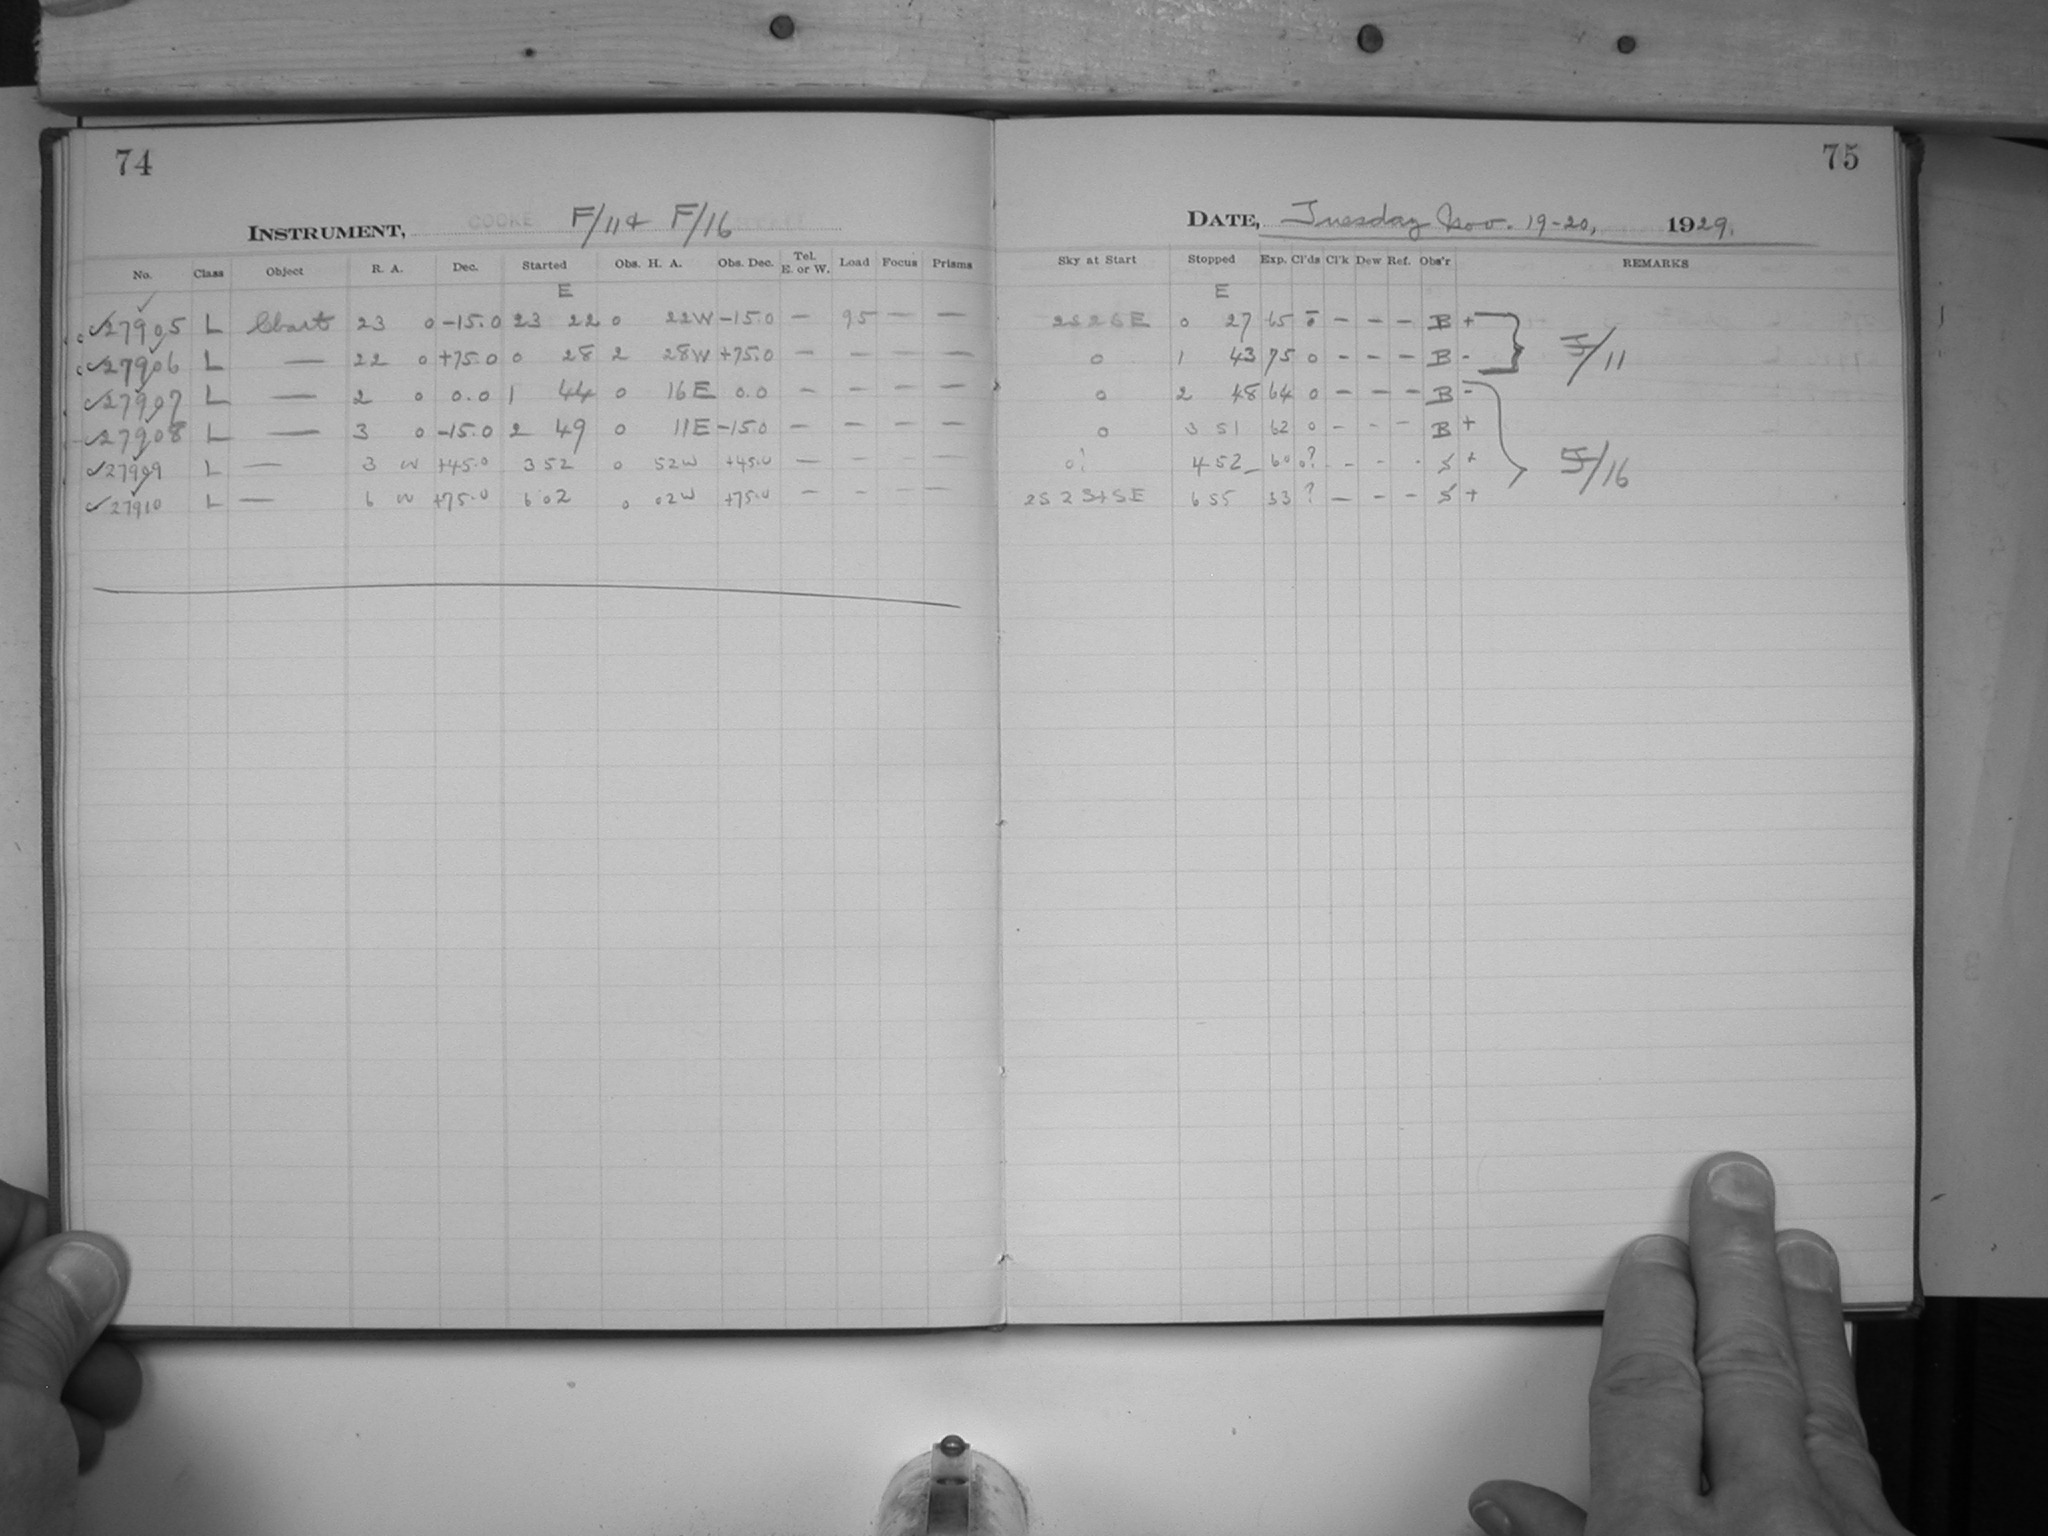 74
75
INSTRUMENT, COOKE F/11 & F/16
DATE, Tuesday Nov. 19-20, 1929.
No. Class Object R. A. Dec. Started Obs. H. A. Obs. Dec. Tel. E. or W. Load Focus Prisms Sky at Start Stopped Exp. Cl'ds Cl'k Dew Ref. Obs'r REMARKS
E E
27905 L Chart 23 0 -15.0 23 22 0 22W -15.0 — 95 — — 2S 2S E 0 27 65 0 — — — B +
27906 L — 22 0 +75.0 0 28 2 28W +75.0 — — — — 0 1 43 75 0 — — — B -
F/11
27907 L — 2 0 0.0 1 44 0 16E 0.0 — — — — 0 2 48 64 0 — — — B -
27908 L — 3 0 -15.0 2 49 0 11E -15.0 — — — — 0 3 51 62 0 - - - B +
27909 L — 3 w +45.0 3 52 0 52W +45.0 — — — — 0? 4 52 60 0? - - - S +
27910 L — 6 w +75.0 6 02 0 02W +75.0 — — — — 2S 2S+SE 6 55 53 ? — - - S +
F/16